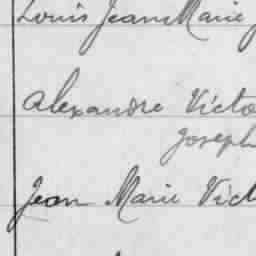 Louis Jean Marie J
Alexandre Victo
Joseph
Jean Marie Vict